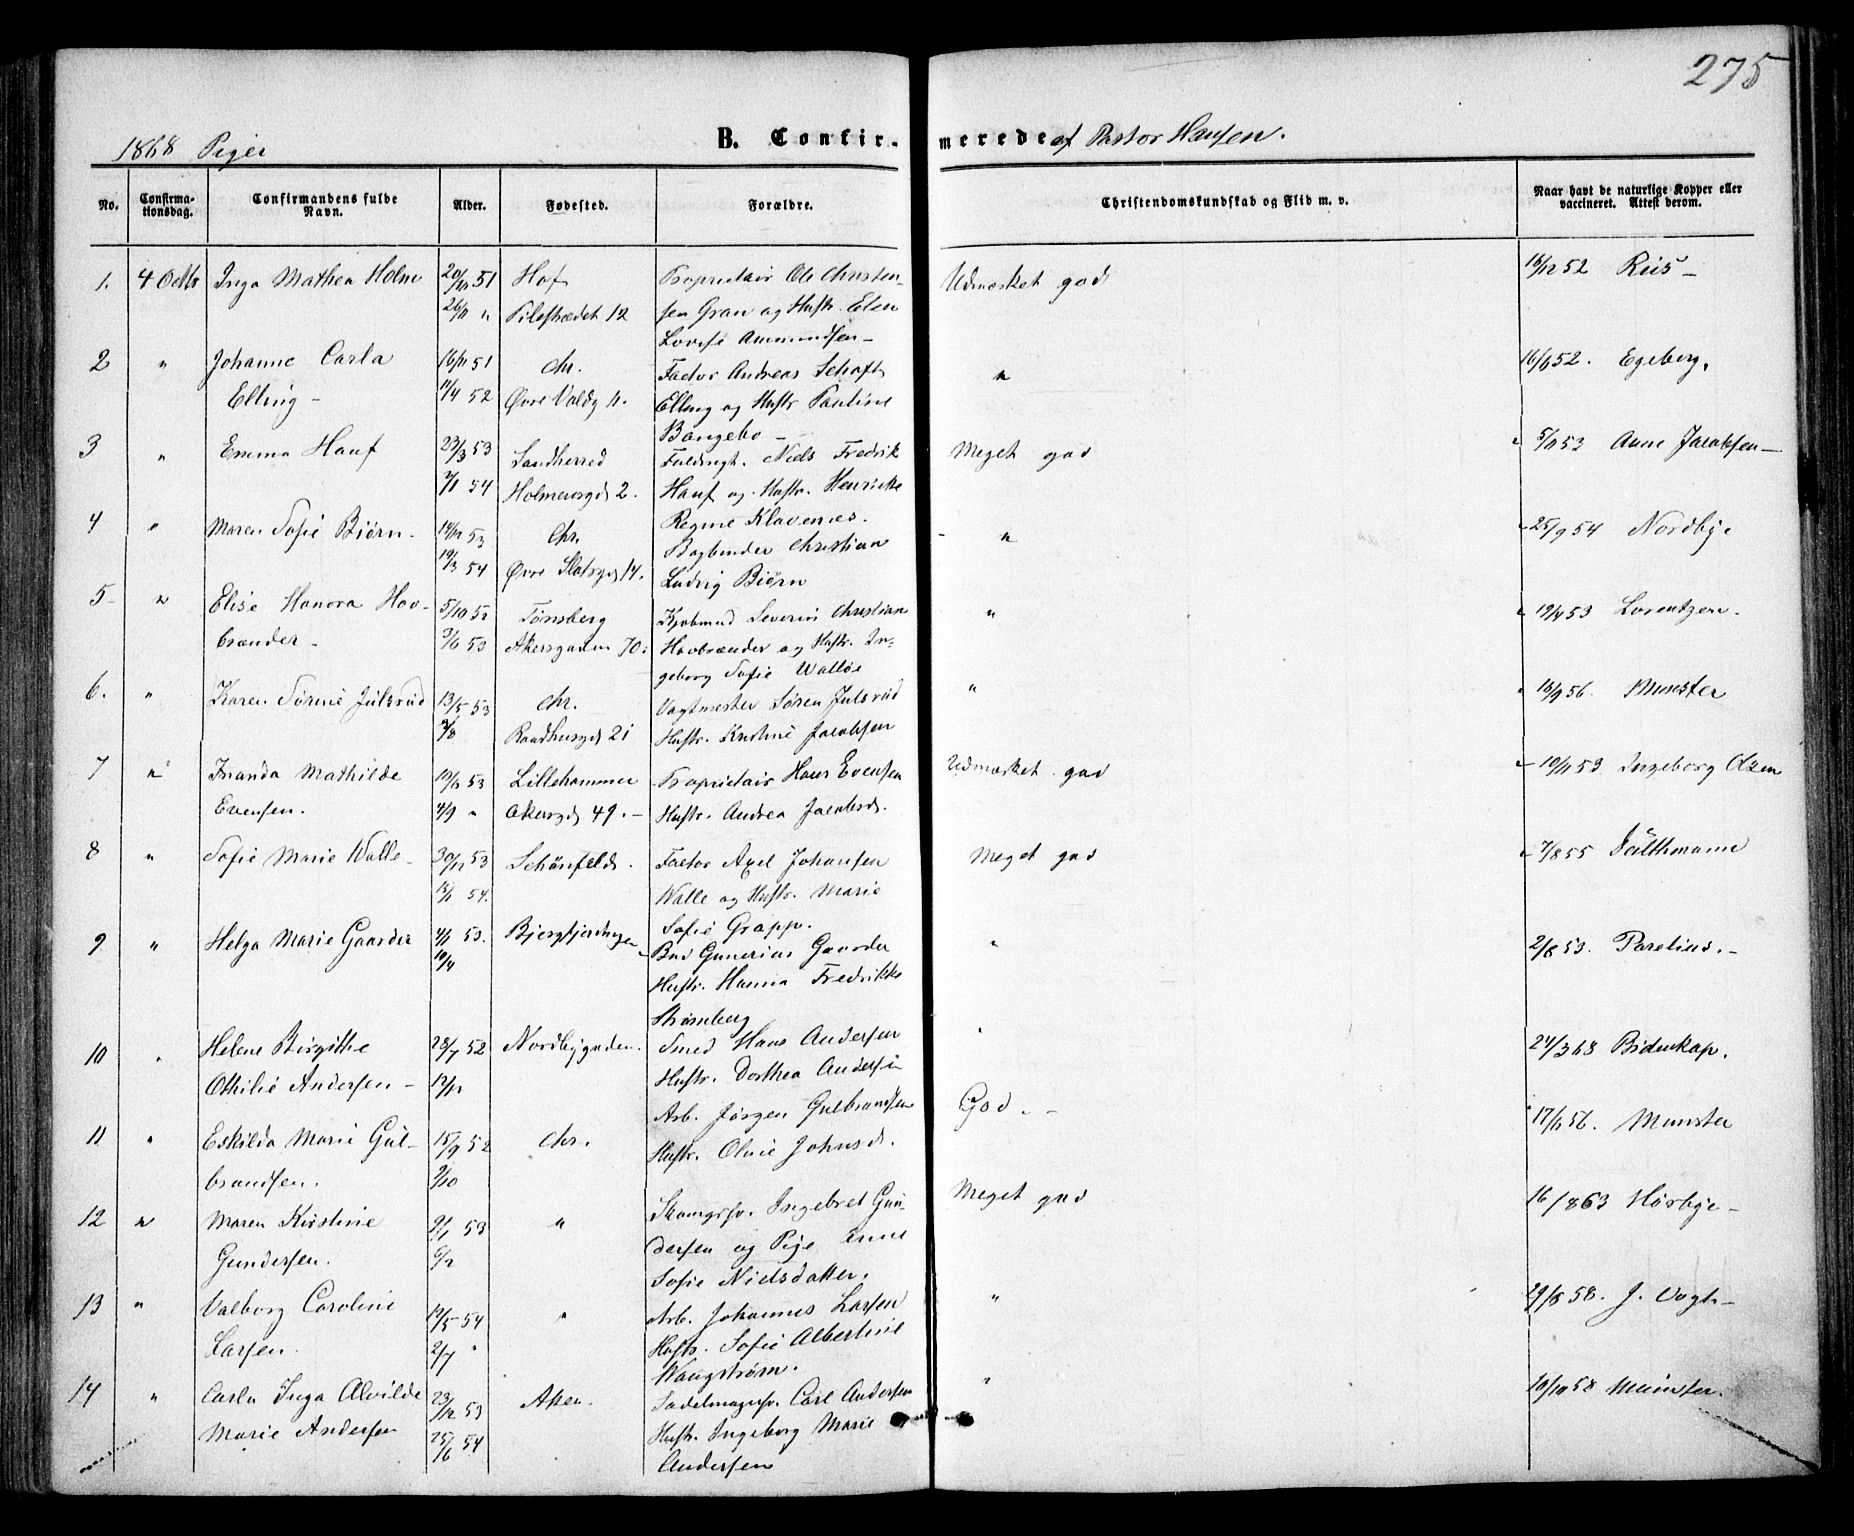 275
1868 Piger B. Confir- merede af Pastor Hansen.
No. Confirma-tionsdag. Confirmandens fulde Navn. Alder. Fødested. Forældre. Christendomskundskab og Flid m. v. Naar havt de naturlige Kopper eller vaccineret. Attest derom.
1. 4 Octb Inga Mathea Holm 20/10 51 Hof Proprietair Ole Christen- Udmærket god 16/12 52 Riis -
26/11 " Pilestrædet 12 sen Gran og Hustr. Elen
Lovise Ammundsen -
2 " Johanne Carla 16/11 51 Chr. Factor Andreas Schaft " 16/6 52. Egeberg.
Elling - 11/4 52 Øvre Voldg 11. Elling og Hustr Pauline
Bangebo -
3 " Emma Hauf 23/3 53 Sandherred Fuldmgt. Niels Fredrik Meget god 5/11 53 Anne Jacobsen -
2/1 54 Holmensgd 2. Hauf og Hustr. Henrikke
Regine Klavenes.
4 " Maren Sofie Biørn. 14/12 53 Chr. Bogbinder Christian " 25/9 54 Nordbye
19/3 54 Øvre Slotsgd 14. Ludvig Biørn
5 " Elise Honora Hov- 5/10 52 Tønsberg Kjøbmnd Severin Christian " 19/4 53 Lorentzen.
brænder - 3/6 53 Akersgaden 70. Hovbrænder og Hustr. In-
geborg Sofie Walløe
6. " Karen Sørine Julsrud 13/5 53 Chr. Vagtmester Søren Julsrud " 16/9 56. Munster
2/8 Raadhusgd 21 Hustr. Kristine Jacobsen
7 " Inanda Mathilde 19/6 53 Lillehammer Proprietair Hans Evensen Udmærket god 10/11 53 Ingeborg Olsen
Evensen. 4/9 " Akersgd 49. - Hustr. Andrea Jacobsd.
8 " Sofie Marie Walle - 30/12 53 Schønfelds Factor Axel Johansen Meget god 7/8 55 Fälthmann
12/1 54. Walle og Hustr. Marie
Sofie Grapp.
9 " Helga Marie Gaarder 4/1 53. Bjergfjerdingen Bud Gunerius Gaarder " 2/8 53. Parelius. -
10/4 Hustr. Hanna Fredrikke
Strømberg
10 " Helene Birgitte 28/7 52 Nordbygaden. Smed Hans Andersen " 24/3 68 Bidenkap.
Othilie Andersen - 12/12 Hustr. Dorthea Andersen
11 " Eskilda Marie Gul- 15/9 52 Chr. Arb. Jørgen Gulbrandsen God. - 17/6 56. Munster
brandsen. 3/10 Hustr. Oline Johnsd.
12 " Maren Kirstine 9/1 53 " Ingebret Gun- Meget god 16/8 63 Hørbye -
Gundersen. 6/2 dersen og Pige Anne
Sofie Nielsdatter.
13 " Valborg Caroline 12/5 54 " Arb. Johannes Larsen " 29/8 58. J. Vogt -
Larsen. 2/7 " Hustr. Sofie Albertine
Wangstrøm.
14 " Carla Inga Alvilde 23/12 53 Aker. Sadelmagersv. Carl Andersen " 10/10 58 Munster.
Marie Andersen 25/6 54 Hustr. Ingeborg Marie
Andersen